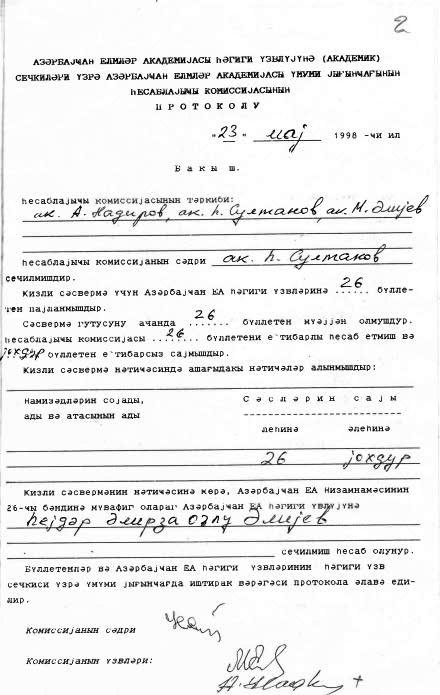 2
АЗӘРБАЈҸАН ЕЛМЛӘР АКАДЕМИЈАСЫ ҺӘГИГИ ҮЗВЛҮЈҮНӘ (АКАДЕМИК)
СЕЧКИЛӘРИ ҮЗРӘ АЗӘРБАЈҸАН ЕЛМЛӘР АКАДЕМИЈАСЫ ҮМУМИ ЈЫҒЫНҸАҒЫНЫН
ҺЕСАБЛАЈЫҸЫ КОМИССИЈАСЫНЫН
ПРОТОКОЛУ
"23" мај 1998 -ҹи ил
Бакы ш.
һесаблајыҹы комиссијасынын тәркиби:
ак. А. Надиров, ак. Һ. Султанов, ак. М. Әлијев
һесаблајыҹы комиссијанын сәдри ак. Һ. Султанов
сечилмишдир.
Кизли сәсвермә үчүн Азәрбајҹан ЕА һәгиги үзвләринә 26 бүлле-
тен пајланмышдыр.
Сәсвермә гутусуну ачанда 26 бүллетен мүәјјән олмушдур.
һесаблајыҹы комиссијасы 26 бүллетени е'тибарлы һесаб етмиш вә
јохдур бүллетен е'тибарсыз сајмышдыр.
Кизли сәсвермә нәтиҹәсиндә ашағыдакы нәтиҹәләр алынмышдыр:
Намизәдләрин сојады,
ады вә атасынын ады
Сәсләрин сајы
леһинә әлеһинә
26 јохдур
Кизли сәсвермәнин нәтиҹәсинә көрә, Азәрбајҹан ЕА Низамнамәсинин
26-ҹы бәндинә мүвафиг олараг Азәрбајҹан ЕА һәгиги үвлүјүнә
Һејдәр Әлирза оғлу Әлијев
сечилмиш һесаб олунур.
Бүллетенләр вә Азәрбајҹан ЕА һәгиги үзвләринин һәгиги үзв
сечкиси үзрә үмуми јығынҹағда иштирак вәрәгәси протокола әлавә еди-
лир.
Комиссијанын сәдри
Комиссијанын үзвләри: